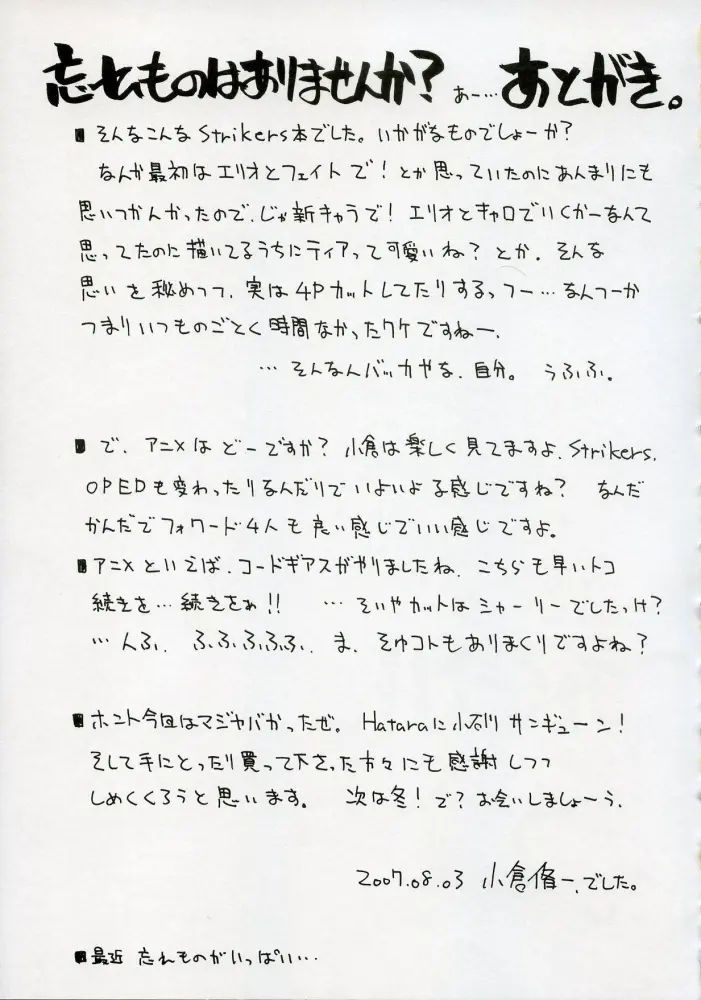 忘れものはありませんか? あー… あとがき。
■そんなこんなStrikers本でした。いかがなものでしょーか?
なんか最初はエリオとフェイトで!とか思っていたのにあんまりにも
思いつかんかったので、じゃ新キャラで!エリオとキャロでいくかーなんて
思ってたのに描いてるうちにティアって可愛いね?とか、そんな
思いを秘めつつ、実は4Pカットしてたりするっつー…なんつーか
つまりいつものごとく時間なかったワケですねー、
…そんなんバッカやな、自分。 うふふ。
■で、アニメはどーですか?小倉は楽しく見てますよ、Strikers、
OPEDも変わったりなんだりでいよいよな感じですね? なんだ
かんだでフォワード4人も良い感じでいい感じですよ。
■アニメといえば、コードギアスがやりましたね、こちらも早いトコ
続きを…続きをぉ!! …そいやカットはシャーリーでしたっけ?
…んふ、ふふふふふ、ま、そゆコトもありまくりですよね?
■ホント今回はマジヤバかったぜ。Hataraに小石川サンギューン!
そして手にとったり買って下さった方々にも感謝しつつ
しめくくろうと思います。 次は冬!で?お会いしましょーう、
2007.08.03 小倉脩一、でした。
■最近 忘れものがいっぱい…